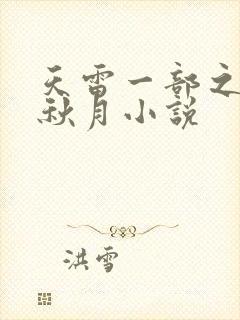 天雷一部之
秋月小説
洪雪